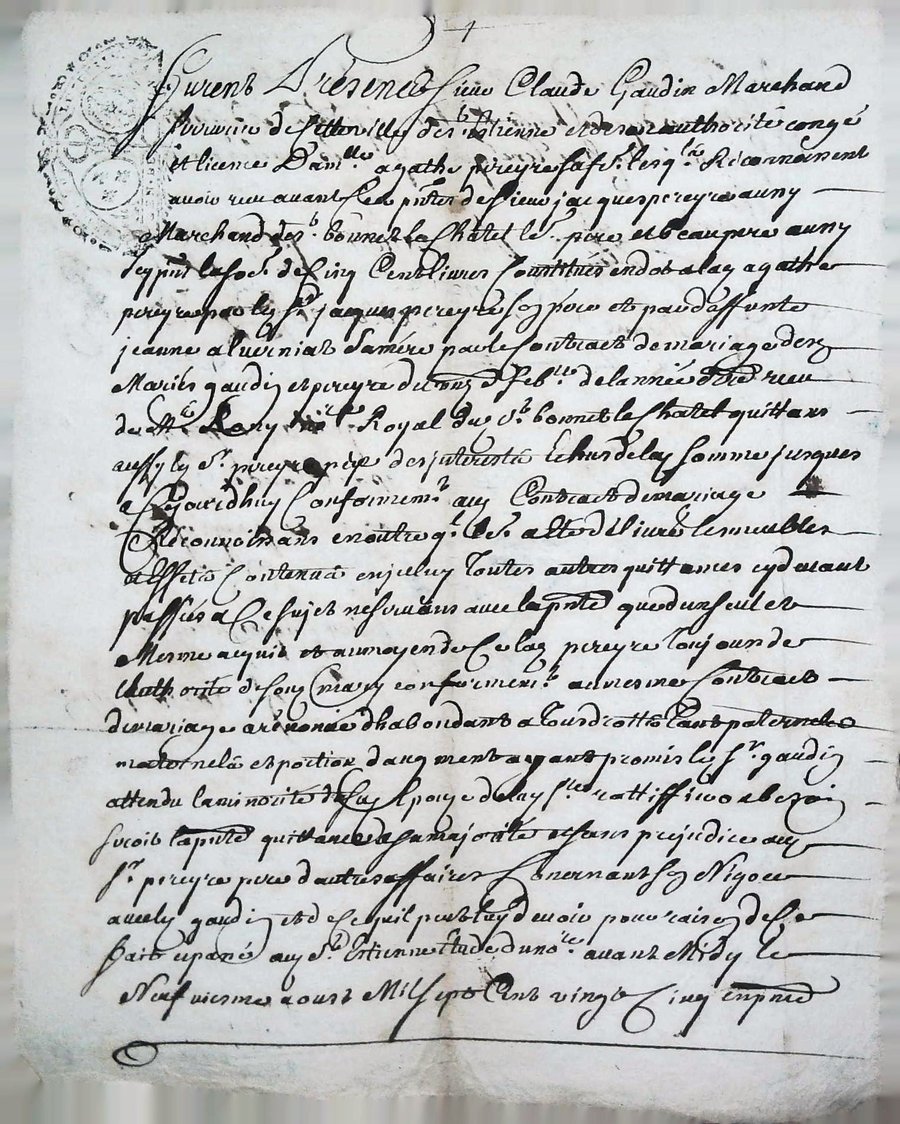 Furent Présents Sieur Claude Gaudin Marchand
de cette ville de st Estienne et de son authorité congé
et licence Dam.lle agathe pereyre sa f.e lesq.ls Reconnoissent
avoir reu avant ces p.ntes de Sieur jacques pereyre auny
Marchand de s.t bonnet le Chatel le.. pere et beaupere auny
icy p.nt la so.e de Cinq Cent livres Constitués en dot a lad agathe
pereyre par led S.r jacques pereyre son pére et par deffunte
jeanne alverniat sa mére par le Contract de mariage desd
Mariés gaudin et pereyre du onze feb.er de lannée reeu
de M.e Royal du s.t bonnet le Chatel quittans
aussy led S.r pereyre pere des jnterests Echus de lad somme jusques
a Cejourdhuy Conformem.t aud Contract de mariage
Réconnoissans en outre q.e led S.r a été délivré les meubles
et Effets Contenus en jceluy Toutes autres quittances cy devant
passées a Ce sujet ne servans avec la p.nte que dun seul et
Mesme acquit et au moyen de Ce lad pereyre Toujours de
lauthorité de son mary conformem.t au mesme Contract
de mariage a renoncé dhabondant a Tous droits Tant paternels
maternels et portion daugment ayant promis led S.r gaudin
attendu la minorité de sad Epouze de luy faire rattiffier sy bezoin
estoit la p.nte quittance a sa majorité et sans prejudice aud
S.r pereyre pere dautres affaires Concernant son Négoce
avec led gaudin et de Ce quil peut luy devoir pour raison de Ce
fait et passé aud S.t Estienne Etude du no.re avant Midy le
Neufviesme aoust Mil sept Cent vingt Cinq en p.nce